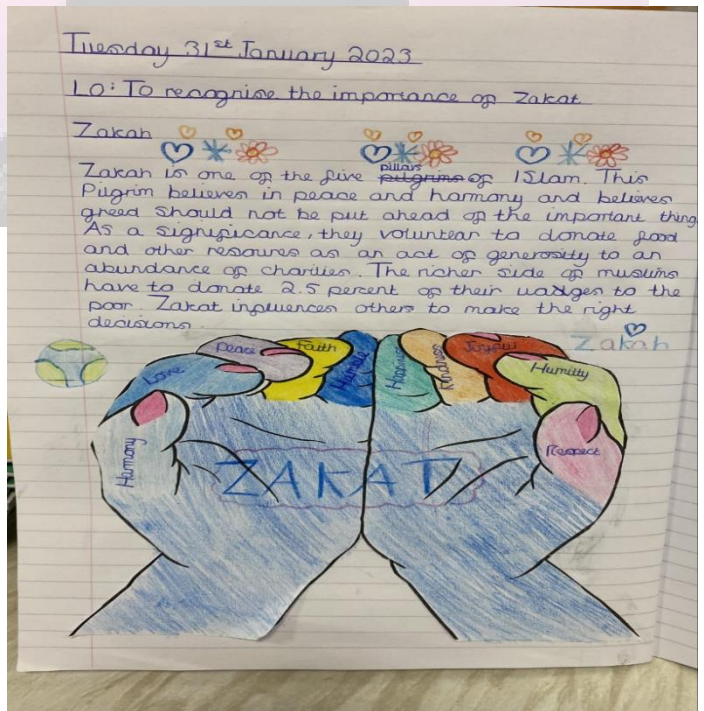 Tuesday 31st January 2023
LO: To recognise the importance of Zakat
Zakah
Zakah is one of the five pilgrims pillars of Islam. This
Pilgrim believes in peace and harmony and believes
greed should not be put ahead of the important thing
As a significance, they voluntear to donate food
and other resoures as an act of generosity to an
abundance of charities. The richer side of muslims
have to donate 2.5 percent of their wadges to the
poor. Zakat influences others to make the right
decisions.
Zakah
Love
Peace
Faith
Humble
Kindness
Joyful
Humilty
Harmony
Respect
ZAKAT